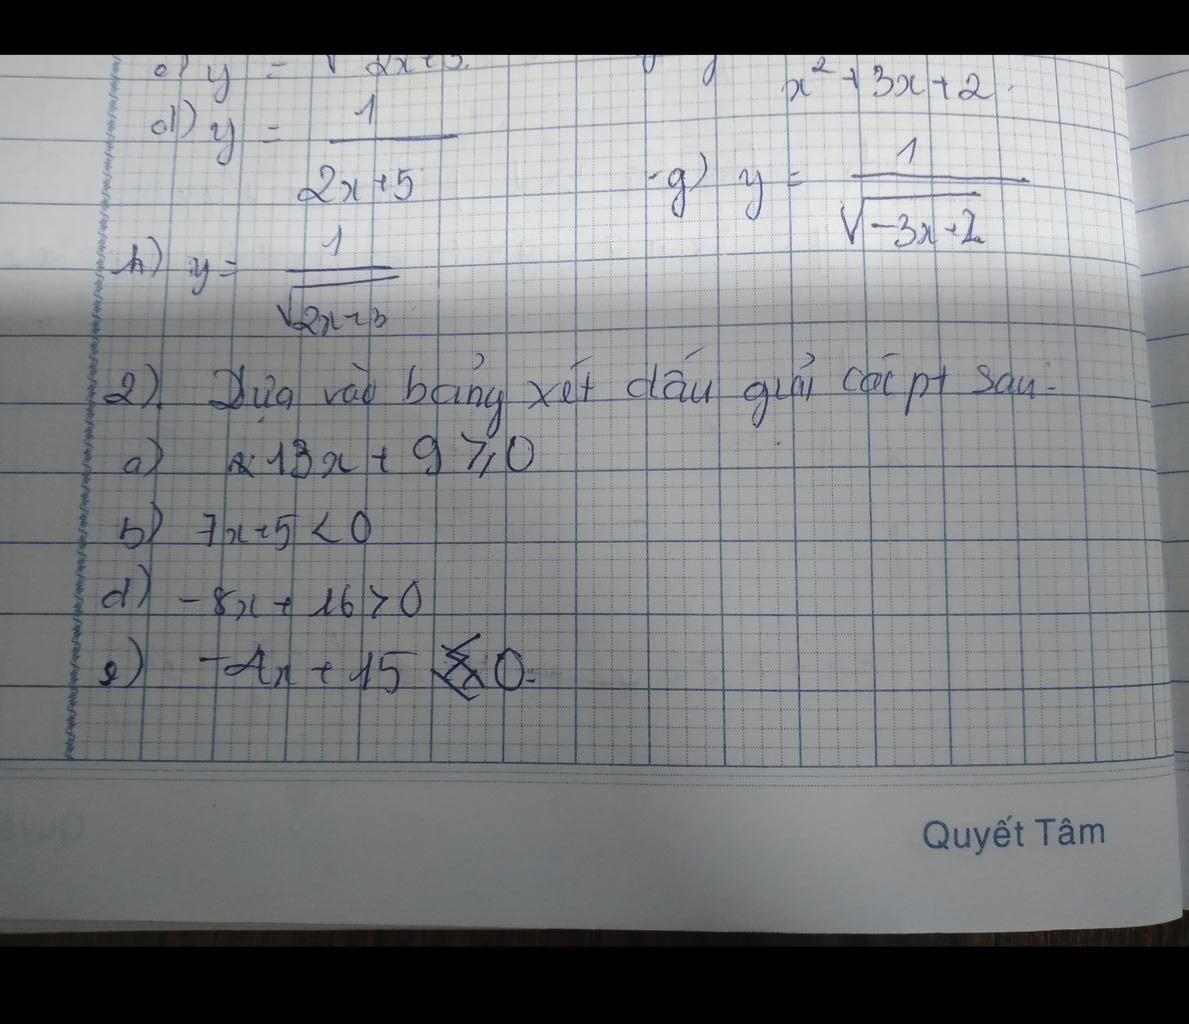 y =
x² + 3x + 2
d) y = 1 / 2x + 5
g) y = 1 / √-3x + 2
h) y = 1 / √2x + 3
2). Dựa vào bảng xét dấu giải các pt sau:
a) 13x + 9 ≥ 0
b) 7x + 5 < 0
d) - 8x + 16 > 0
e) -4x + 15 0
Quyết Tâm